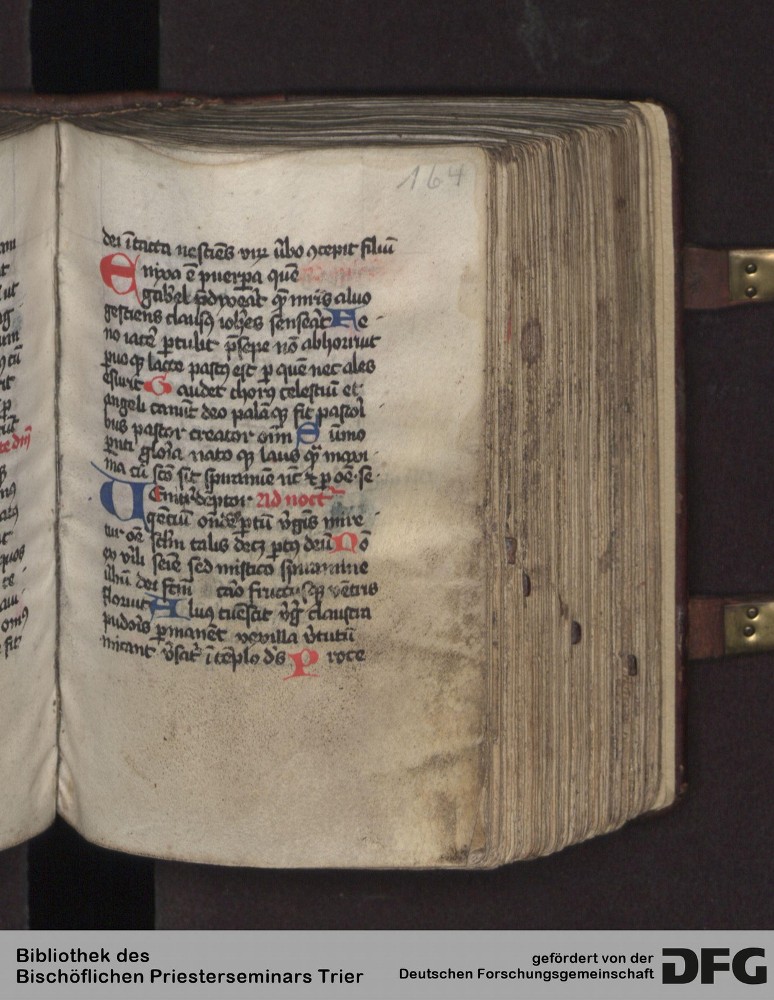 164
dei ītacta nesciēs viꝝ v̄bo ꝯcepit filiū
Enixa ē puerpa quē
gab̓el p̄dixerat qͥ mr̄is aluo
gestiens clausꝰ ioh̄es senserat Fe
no iacē ꝑtulit p̄sepe nō abhorruit
ꝑuoqꝫ lacte pastꝰ est ꝑ quē nec ales
esurit Gaudet chorꝰ celestiū et
angeli canūt deo palāqꝫ fit pastoi
bus pastor creator oīm Sūmo
pn̄ti gloīa natoqꝫ laus qͣ
ma cū sc̄o sit spiramīe nc̄ ⁊ ꝑ oē se
Ueni redēptor Ad noct
gentiū ondē ꝑtū v̓gīs mire
tur oē sclm̄ talis decꝫ ꝑtꝰ deū Nō
ex v̓ili seīe sed mistico spiramīe
v̓bū dei fc̄m caro fructusqꝫ vētris
floruit Aluꝰ tuescit v̓g̓ claustra
pudoīs ꝑmanēt vexilla v̓tutū
micant v̓sat̓ ī tēplo d̓s Proce
te dn̄i
quos
fit
Bibliothek des
Bischöflichen Priesterseminars Trier
gefördert von der
Deutschen Forschungsgemeinschaft
DFG